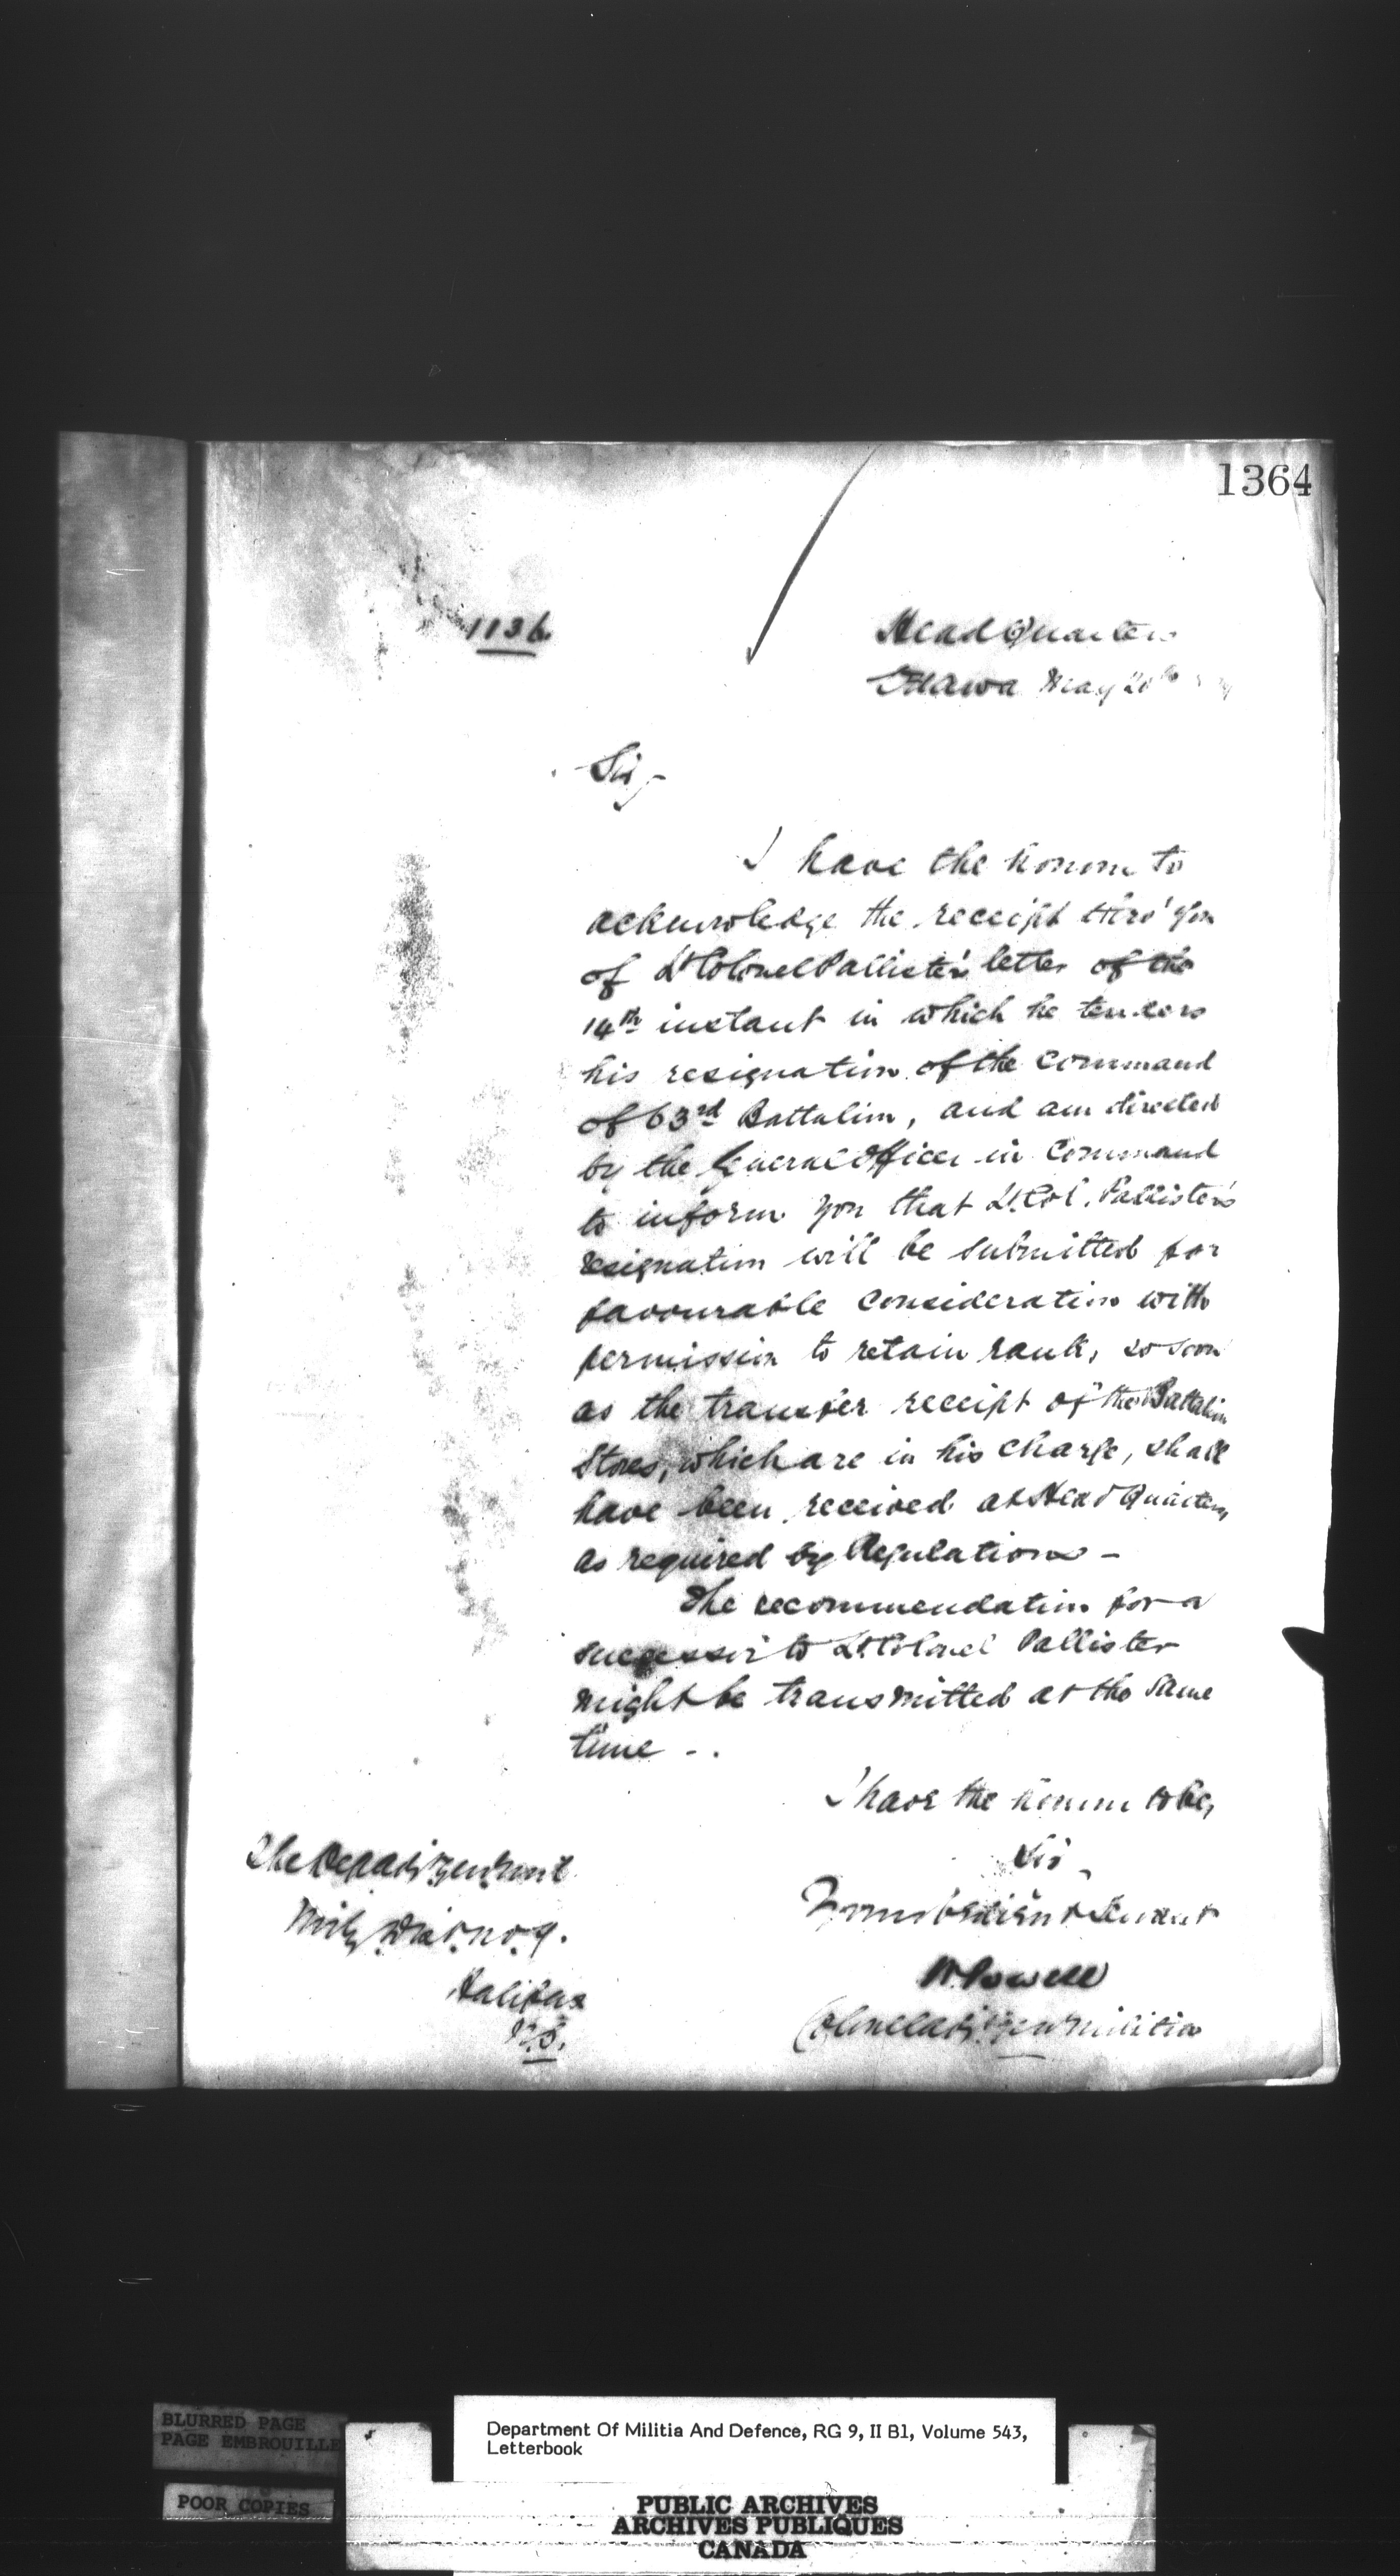 1364
1136
Head Quarters
Ottawa May 20th
Sir,-
I have the honour to
acknowledge the receipt thro' you
of Lt Colonel Pallister's letter of the
14th instant in which he tenders
his resignation of the command
of 63rd Battalion, and am directed
by the General Officer in Command
to inform you that Lt. Col. Pallister's
resignation will be submitted for
favourable consideration with
permission to retain rank, so soon
as the transfer receipt of the Battalion
Stores, which are in his charge, shall
have been received at Head Quarters,
as required by Regulations -
The recommendation for a
successor to Lt. Colonel Pallister
might be transmitted at the same
time - .
I have the honour to be,
Sir,
Your obedient Servant
W Powell
Colonel Adj. Gen Militia
The Dep Adj Gen
Mily Dist. No. 9.
Halifax
N.S.
BLURRED PAGE
PAGE EMBROUILLE
POOR COPIES
Department Of Militia And Defence, RG 9, II B1, Volume 543,
Letterbook
PUBLIC ARCHIVES
ARCHIVES PUBLIQUES
CANADA